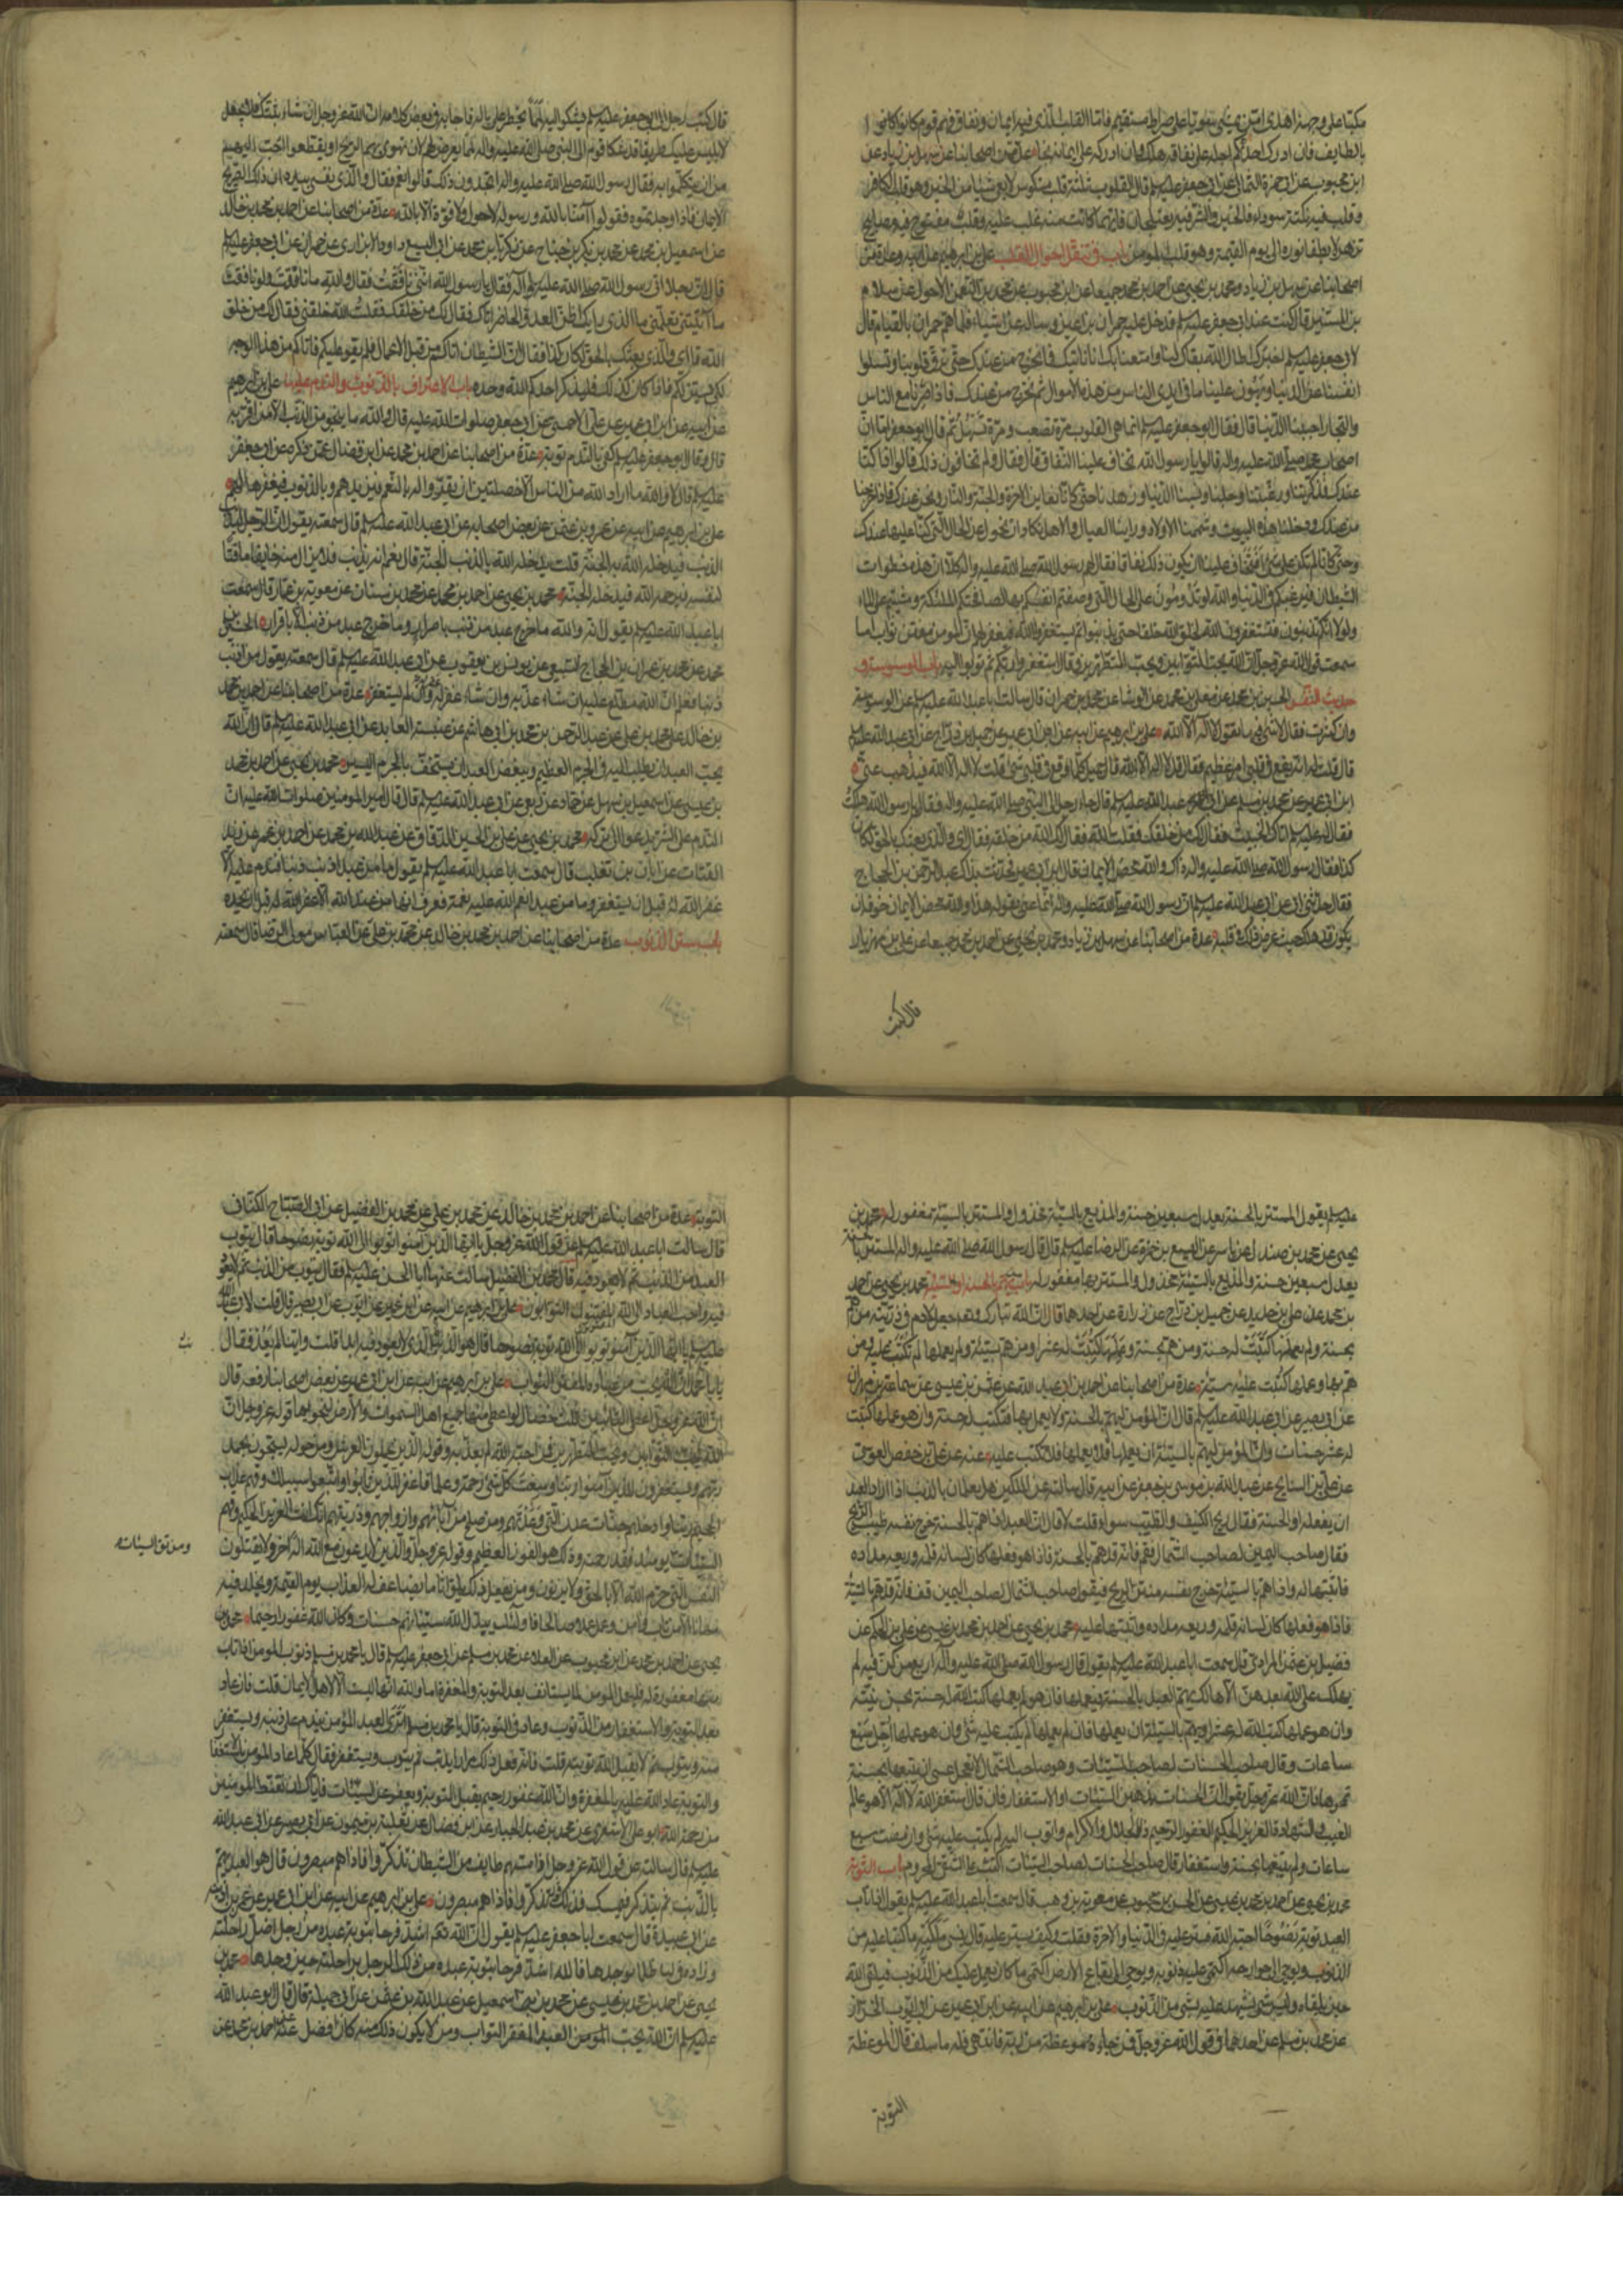 مكبا على وجهه اهدى امن يمشى سويا على صراط مستقيم فاما القلب الذى فيه ايمان ونفاق فهم قوم كانوا
بالطايف فان ادرك احدهم اجله على نفاقه هلك وان ادركه على ايمانه نجا عدة من اصحابنا عن سهل بن زياد عن
ابن محبوب عن ابى حمزة الثمالى عن ابى جعفر عليه السلم قال القلوب ثلثة قلب منكوس لا يعى شيئا من الخير وهو قلب الكافر
وقلب فيه نكتة سوداء فالخير والشر فيه يعتلجان فايهما كانت منه غلب عليه وقلب مفتوح فيه مصابيح
تزهر لا يطفأ نوره الى يوم القيمة وهو قلب المومن باب فى تنقل احوال القلب على بن ابرهيم عن ابيه وعدة من
اصحابنا عن سهل بن زياد ومحمد بن يحيى عن احمد بن محمد جميعا عن ابن محبوب عن محمد بن النعمن الاحول عن سلام
بن المستنير قال كنت عند ابى جعفر عليه السلم فدخل عليه حمران بن اعين وساله عن اشياء فلما هم حمران بالقيام قال
لابى جعفر عليه السلم اخبرك اطال الله بقاك لنا وامتعنا بك انا ناتيك فما نخرج من عندك حتى ترق قلوبنا وتسلو
انفسنا عن الدنيا ويهون علينا ما فى ايدى الناس من هذه الاموال ثم نخرج من عندك فاذا صرنا مع الناس
والتجار احببنا الدنيا قال فقال ابو جعفر عليه السلم انما هى القلوب مرة تصعب ومرة تسهل ثم قال ابو جعفر اما ان
اصحاب محمد صلى الله عليه واله قالوا يا رسول الله نخاف علينا النفاق قال فقال ولم تخافون ذلك قالوا اذا كنا
عندك فذكرتنا ورغبتنا وجلنا ونسينا الدنيا وزهدنا حتى كانا نعاين الاخرة والجنة والنار ونحن عندك فاذا خرجنا
من عندك ودخلنا هذه البيوت وشممنا الاولاد وراينا العيال والاهل نكاد ان نحول عن الحال التى كنا عليها عندك
وحتى كانا لم نكن على شى افتخاف علينا ان يكون ذلك نفاقا فقال لهم رسول الله صلى الله عليه واله كلا ان هذه خطوات
الشيطان فيرغبكم فى الدنيا والله لو تدومون على الحال التى وصفتم انفسكم بها لصافحتكم الملئكة ومشيتم على الماء
ولولا انكم تذنبون فتستغفرون الله لخلق الله خلقا حتى يذنبوا ثم يستغفروا الله فيغفر لهم ان المومن مفتن تواب اما
سمعت قول الله عز وجل ان الله يحب التوابين ويحب المتطهرين وقال استغفروا ربكم ثم توبوا اليه باب الوسوسة و
حديث النفس الحسين بن محمد عن معلى بن محمد عن الوشا عن محمد بن حمران قال سالت ابا عبد الله عليه السلم عن الوسوسة
وان كثرت فقال لا شى فيها تقول لا اله الا الله على بن ابرهيم عن ابيه عن ابن ابى عمير عن جميل بن دراج عن ابى عبد الله عليه السلم
قال قلت له انه يقع فى قلبى امر عظيم فقال قل لا اله الا الله قال جميل فكلما وقع فى قلبى شى قلت لا اله الا الله فيذهب عنى
ابن ابى عمير عن محمد بن مسلم عن ابى عبد الله عليه السلم قال جاء رجل الى النبى صلى الله عليه واله فقال يا رسول الله هلكت
فقال له عليه السلم اتاك الخبيث فقال لك من خلقك فقلت الله فقال لك الله من خلقه فقال اى والذى بعثك بالحق لكان
كذا فقال رسول الله صلى الله عليه واله ذاك والله محض الايمان قال ابن ابى عمير فحدثت بذاك عبد الرحمن بن الحجاج
فقال حدثنى ابى عن ابى عبد الله عليه السلم ان رسول الله صلى الله عليه واله انما عنى بقوله هذا والله محض الايمان خوفه ان
يكون قد هلك حيث عرض ذلك فى قلبه عدة من اصحابنا عن سهل بن زياد ومحمد بن يحيى عن احمد بن محمد جميعا عن على بن مهزيار
قال كتب
قال كتب رجل الى ابى جعفر عليه السلم يشكو اليه لمما يخطر على باله فاجابه فى بعض كلامه ان الله عز وجل ان شاء ثبتك فلا يجعل
لابليس عليك طريقا قد شكا قوم الى النبى صلى الله عليه واله لمما يعرض لهم لان تهوى بهم الريح او يقطعوا احب اليهم
من ان يتكلموا به فقال رسول الله صلى الله عليه واله اتجدون ذلك قالوا نعم فقال والذى نفسى بيده ان ذلك لصريح
الايمان فاذا وجدتموه فقولوا آمنا بالله ورسوله ولا حول ولا قوة الا بالله عدة من اصحابنا عن احمد بن محمد بن خالد
عن اسمعيل بن محمد عن محمد بن بكر بن جناح عن زكريا بن محمد عن ابى اليسع داود الابزارى عن حمران عن ابى جعفر عليه السلم
قال ان رجلا اتى رسول الله صلى الله عليه واله فقال يا رسول الله اننى نافقت فقال والله ما نافقت ولو نافقت
ما اتيتنى تعلمنى ما الذى رابك اظن العدو الحاضر اتاك فقال لك من خلقك فقلت الله خلقنى فقال لك من خلق
الله قال اى والذى بعثك بالحق لكان كذا فقال ان الشيطان اتاكم من قبل الاعمال فلم يقو عليكم فاتاكم من هذا الوجه
لكى يستزلكم فاذا كان كذلك فليذكر احدكم الله وحده باب الاعتراف بالذنوب والندم عليها على بن ابرهيم
عن ابيه عن ابن ابى عمير عن على الاحمسى عن ابى جعفر صلوات الله عليه قال والله ما ينجو من الذنب الا من اقر به
قال وقال ابو جعفر عليه السلم كفى بالندم توبة عدة من اصحابنا عن احمد بن محمد عن ابن فضال عمن ذكره عن ابى جعفر
عليه السلم قال لا والله ما اراد الله من الناس الا خصلتين ان يقروا له بالنعم فيزيدهم وبالذنوب فيغفرها لهم
على بن ابرهيم عن ابيه عن عمرو بن عثمن عن بعض اصحابه عن ابى عبد الله عليه السلم قال سمعته يقول ان الرجل ليذنب
الذنب فيدخله الله به الجنة قلت يدخله الله بالذنب الجنة قال نعم انه ليذنب فلا يزال منه خايفا ماقتا
لنفسه فيرحمه الله فيدخله الجنة محمد بن يحيى عن احمد بن محمد عن محمد بن سنان عن معوية بن عمار قال سمعت
ابا عبد الله عليه السلم يقول انه والله ما خرج عبد من ذنب باصرار وما خرج عبد من ذنب الا باقرار الحسين بن
محمد عن محمد بن عمران بن الحجاج السبيعى عن يونس بن يعقوب عن ابى عبد الله عليه السلم قال سمعته يقول من اذنب
ذنبا فعلم ان الله مطلع عليه ان شاء عذبه وان شاء غفر له غفر له وان لم يستغفر عدة من اصحابنا عن احمد بن محمد
بن خالد عن محمد بن على عن عبد الرحمن بن محمد بن ابى هاشم عن عنبسة العابد عن ابى عبد الله عليه السلم قال ان الله
يحب العبد ان يطلب اليه فى الجرم العظيم ويبغض العبد ان يستخف بالجرم اليسير محمد بن يحيى عن احمد بن محمد
بن عيسى عن اسمعيل بن سهل عن حماد عن ربعى عن ابى عبد الله عليه السلم قال قال امير المومنين صلوات الله عليه ان
الندم على الشر يدعو الى تركه محمد بن يحيى عن على بن الحسين الدقاق عن عبد الله بن محمد عن احمد بن عمر عن زيد
القتات عن ابان بن تغلب قال سمعت ابا عبد الله عليه السلم يقول ما من عبد اذنب ذنبا فندم عليه الا
غفر الله له قبل ان يستغفر وما من عبد انعم الله عليه نعمة فعرف انها من عند الله الا غفر الله له قبل ان يحمده
باب ستر الذنوب عدة من اصحابنا عن احمد بن محمد بن خالد عن محمد بن على عن العباس مولى الرضا قال سمعته
عليه السلم يقول المستتر بالحسنة يعدل سبعين حسنة والمذيع بالسيئة مخذول والمستتر بالسيئة مغفور له محمد بن
يحيى عن محمد بن صندل عن ياسر عن اليسع بن حمزة عن الرضا عليه السلم قال قال رسول الله صلى الله عليه واله المستتر بالحسنة
يعدل سبعين حسنة والمذيع بالسيئة مخذول والمستتر بها مغفور له باب من يهم بالحسنة او السيئة محمد بن يحيى عن احمد
بن محمد عن على بن حديد عن جميل بن دراج عن زرارة عن احدهما قال ان الله تبارك وتعالى جعل لادم فى ذريته من هم
بحسنة ولم يعملها كتبت له حسنة ومن هم بحسنة وعملها كتبت له عشرا ومن هم بسيئة ولم يعملها لم تكتب عليه ومن
هم بها وعملها كتبت عليه سيئة عدة من اصحابنا عن احمد بن ابى عبد الله عن عثمن بن عيسى عن سماعة بن مهران
عن ابى بصير عن ابى عبد الله عليه السلم قال ان المؤمن ليهم بالحسنة ولا يعمل بها فتكتب له حسنة وان هو عملها كتبت
له عشر حسنات وان المؤمن ليهم بالسيئة ان يعملها فلا يعملها فلا تكتب عليه عنه عن على بن حفص العوسى
عن على بن السايح عن عبد الله بن موسى بن جعفر عن ابيه قال سالته عن الملكين هل يعلمان بالذنب اذا اراد العبد
ان يفعله او الحسنة فقال ريح الكنيف والطيب سواء قلت لا قال ان العبد اذا هم بالحسنة خرج نفسه طيب الريح
فقال صاحب اليمين لصاحب الشمال قم فانه قد هم بالحسنة فاذا هو فعلها كان لسانه قلمه وريقه مداده
فاثبتها له واذا هم بالسيئة خرج نفسه منتن الريح فيقول صاحب الشمال لصاحب اليمين قف فانه قد هم بالسيئة
فاذا هو فعلها كان لسانه قلمه وريقه مداده واثبتها عليه محمد بن يحيى عن احمد بن محمد بن عيسى عن على بن الحكم عن
فضيل بن عثمن المرادى قال سمعت ابا عبد الله عليه السلم يقول قال رسول الله صلى الله عليه واله اربع من كن فيه لم
يهلك على الله بعدهن الا هالك يهم العبد بالحسنة فيعملها فان هو لم يعملها كتب الله له حسنة بحسن نيته
وان هو عملها كتب الله له عشرا ويهم بالسيئة ان يعملها فان لم يعملها لم يكتب عليه شى وان هو عملها اجل سبع
ساعات وقال صاحب الحسنات لصاحب السيئات وهو صاحب الشمال لا تعجل عسى ان يتبعها بحسنة
تمحوها فان الله عز وجل يقول ان الحسنات يذهبن السيئات او الاستغفار فان قال استغفر الله لا اله الا هو عالم
الغيب والشهادة العزيز الحكيم الغفور الرحيم ذا الجلال والاكرام واتوب اليه لم يكتب عليه شى وان مضت سبع
ساعات ولم يتبعها بحسنة واستغفار قال صاحب الحسنات لصاحب السيئات اكتب على الشقى المحروم باب التوبة
محمد بن يحيى عن احمد بن محمد بن عيسى عن الحسن بن محبوب عن معوية بن وهب قال سمعت ابا عبد الله عليه السلم يقول اذا تاب
العبد توبة نصوحا احبه الله فستر عليه فى الدنيا والاخرة فقلت وكيف يستر عليه قال ينسى ملكيه ما كتبا عليه من
الذنوب ويوحى الى جوارحه اكتمى عليه ذنوبه ويوحى الى بقاع الارض اكتمى ما كان يعمل عليك من الذنوب فيلقى الله
حين يلقاه وليس شى يشهد عليه بشى من الذنوب على بن ابرهيم عن ابيه عن ابن ابى عمير عن ابى ايوب الخزاز
عن محمد بن مسلم عن احدهما فى قول الله عز وجل فمن جاءه موعظة من ربه فانتهى فله ما سلف قال الموعظة
التوبة
التوبة عدة من اصحابنا عن احمد بن محمد بن خالد عن محمد بن على عن محمد بن الفضيل عن ابى الصباح الكنانى
قال سالت ابا عبد الله عليه السلم عن قول الله عز وجل يا ايها الذين آمنوا توبوا الى الله توبة نصوحا قال يتوب
العبد من الذنب ثم لا يعود فيه قال محمد بن الفضيل سالت عنها ابا الحسن عليه السلم فقال يتوب من الذنب ثم لا يعود
فيه واحب العباد الى الله المفتنون التوابون على بن ابرهيم عن ابيه عن ابن ابى عمير عن ابى ايوب عن ابى بصير قال قلت لابى عبد الله
عليه السلم يا ايها الذين آمنوا توبوا الى الله توبة نصوحا قال هو الذنب الذى لا يعود فيه ابدا قلت واينا لم يعد فقال
يا با محمد ان الله يحب من عباده المفتن التواب على بن ابرهيم عن ابيه عن ابن ابى عمير عن بعض اصحابنا رفعه قال
ان الله عز وجل اعطى التائبين ثلث خصال لو اعطى خصلة منها جميع اهل السموات والارض لنجوا بها قوله عز وجل ان
الله يحب التوابين ويحب المتطهرين فمن احبه الله لم يعذبه وقوله الذين يحملون العرش ومن حوله يسبحون بحمد
ربهم ويستغفرون للذين آمنوا ربنا وسعت كل شى رحمة وعلما فاغفر للذين تابوا واتبعوا سبيلك وقهم عذاب
الجحيم ربنا وادخلهم جنات عدن التى وعدتهم ومن صلح من آبائهم وازواجهم وذرياتهم انك انت العزيز الحكيم وقهم
السيئات يومئذ فقد رحمته وذلك هو الفوز العظيم وقوله عز وجل والذين لا يدعون مع الله الها آخر ولا يقتلون
ومن تق السيئات
النفس التى حرم الله الا بالحق ولا يزنون ومن يفعل ذلك يلق اثاما يضاعف له العذاب يوم القيمة ويخلد فيه
مهانا الا من تاب وآمن وعمل عملا صالحا فاولئك يبدل الله سيئاتهم حسنات وكان الله غفورا رحيما محمد بن
يحيى عن احمد بن محمد عن ابن محبوب عن العلاء عن محمد بن مسلم عن ابى جعفر عليه السلم قال يا محمد بن مسلم ذنوب المومن اذا تاب
منها مغفورة له فليعمل المومن لما يستانف بعد التوبة والمغفرة اما والله انها ليست الا لاهل الايمان قلت فان عاد
بعد التوبة والاستغفار من الذنوب وعاد فى التوبة قال يا محمد بن مسلم اترى العبد المؤمن يندم على ذنبه ويستغفر
منه ويتوب ثم لا يقبل الله توبته قلت فانه فعل ذلك مرارا يذنب ثم يتوب ويستغفر فقال كلما عاد المومن بالاستغفار
والتوبة عاد الله عليه بالمغفرة وان الله غفور رحيم يقبل التوبة ويعفو عن السيئات فاياك ان تقنط المومنين
من رحمة الله ابو على الاشعرى عن محمد بن عبد الجبار عن ابن فضال عن ثعلبة بن ميمون عن ابى بصير عن ابى عبد الله
عليه السلم قال سالته عن قول الله عز وجل اذا مسهم طايف من الشيطان تذكروا فاذا هم مبصرون قال هو العبد يهم
بالذنب ثم يتذكر فيمسك فذلك قوله تذكروا فاذا هم مبصرون على بن ابرهيم عن ابيه عن ابن ابى عمير عن عمر بن اذينة
عن ابى عبيدة قال سمعت ابا جعفر عليه السلم يقول ان الله تعالى اشد فرحا بتوبة عبده من رجل اضل راحلته
وزاده فى ليلة ظلماء فوجدها فالله اشد فرحا بتوبة عبده من ذلك الرجل براحلته حين وجدها محمد بن
يحيى عن احمد بن محمد بن عيسى عن محمد بن اسمعيل عن عبد الله بن عثمن عن ابى جميلة قال قال ابو عبد الله
عليه السلم ان الله يحب المومن العبد المفتن التواب ومن لا يكون ذلك منه كان افضل عنه احمد بن محمد عن